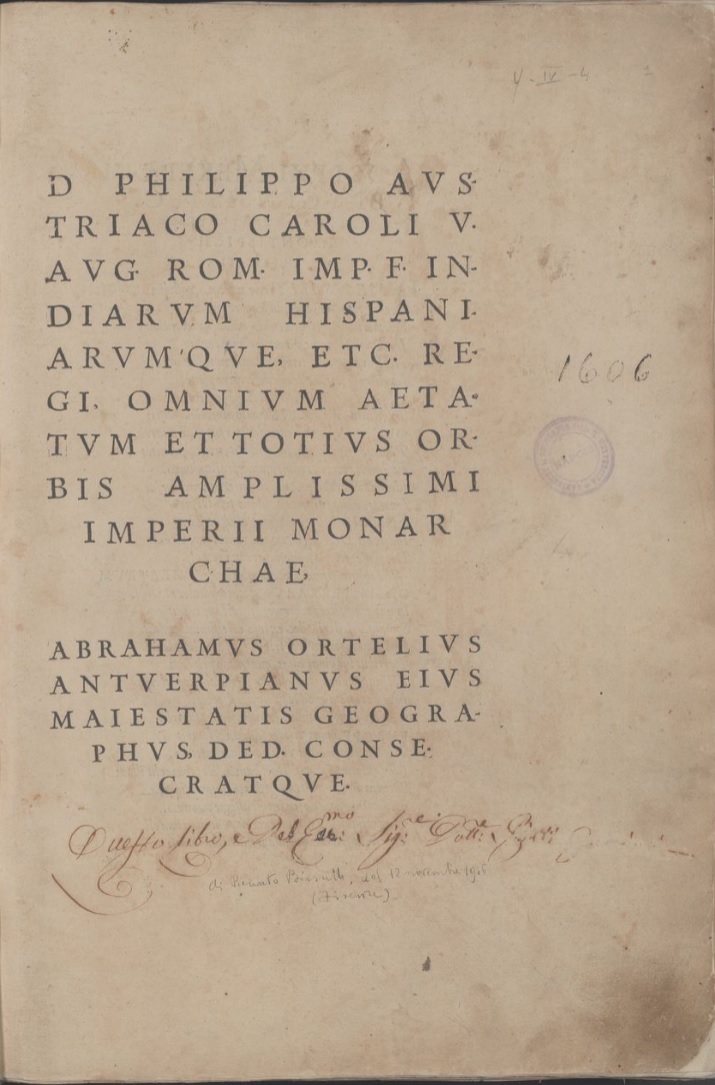 Y-IV-4
D PHILIPPO AVS-
TRIACO CAROLI V.
AVG. ROM. IMP. F. IN-
DIARVM HISPANI-
ARVM'QVE, ETC. RE-
GI, OMNIVM AETA-
TVM ET TOTIVS OR-
BIS AMPLISSIMI
IMPERII MONAR
CHAE,
1606
ABRAHAMVS ORTELIVS
ANTVERPIANVS EIVS
MAIESTATIS GEOGRA-
PHVS, DED. CONSE-
CRATQVE.
Questo Libro, e Del
di Renato 12 novembre
(Firenze)